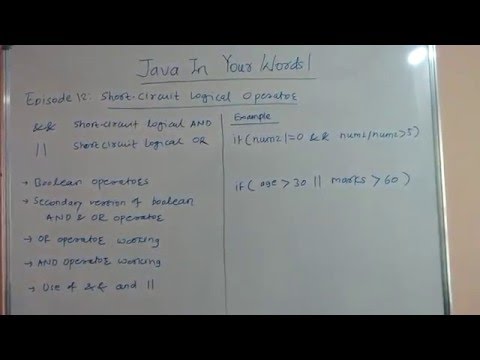 Java In Your Words!
Episode 12: Short-Circuit Logical Operator
&& Short-circuit logical AND
|| Short circuit logical OR
→ Boolean operators
→ Secondary version of boolean
AND & OR operator
→ OR operator working
→ AND operator working
→ Use of && and ||
Example
if(num2!=0 && num1/num2>5)
if( age > 30 || marks > 60 )